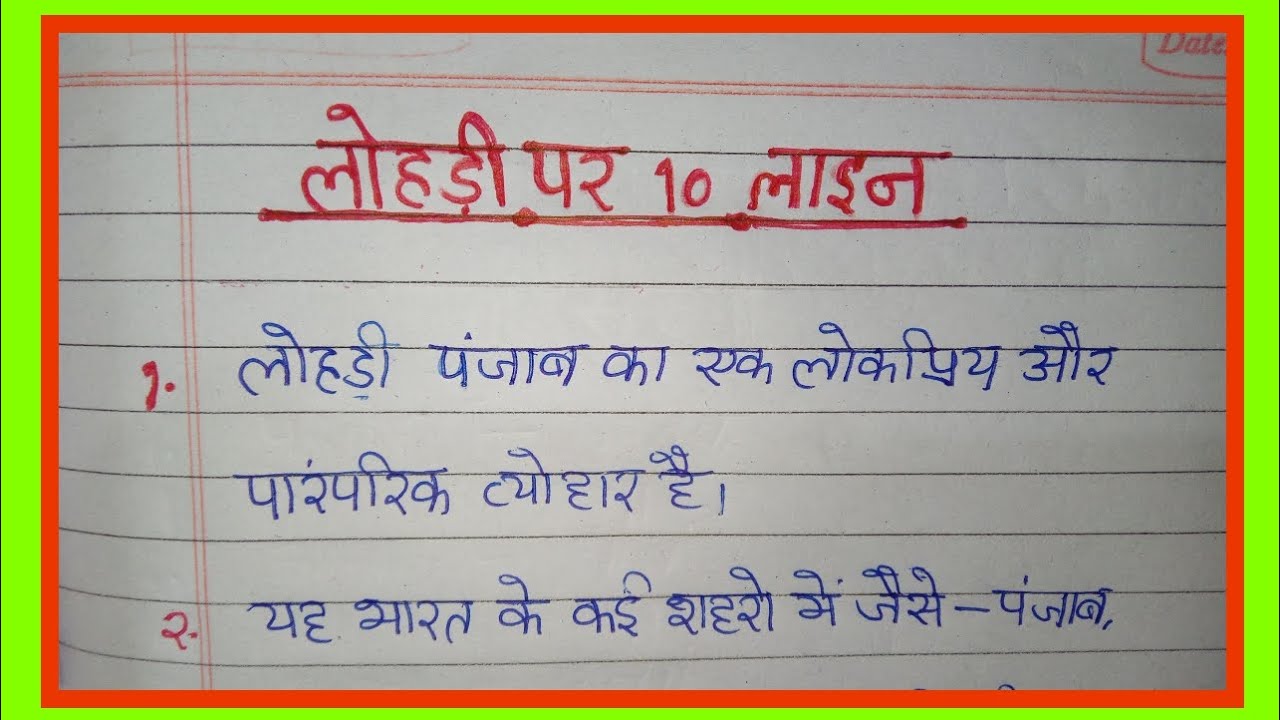 Date:
लोहड़ी पर 10 लाइन
1. लोहड़ी पंजाब का एक लोकप्रिय और
पारंपरिक त्योहार है।
२. यह भारत के कई शहरो में जैसे – पंजाब,